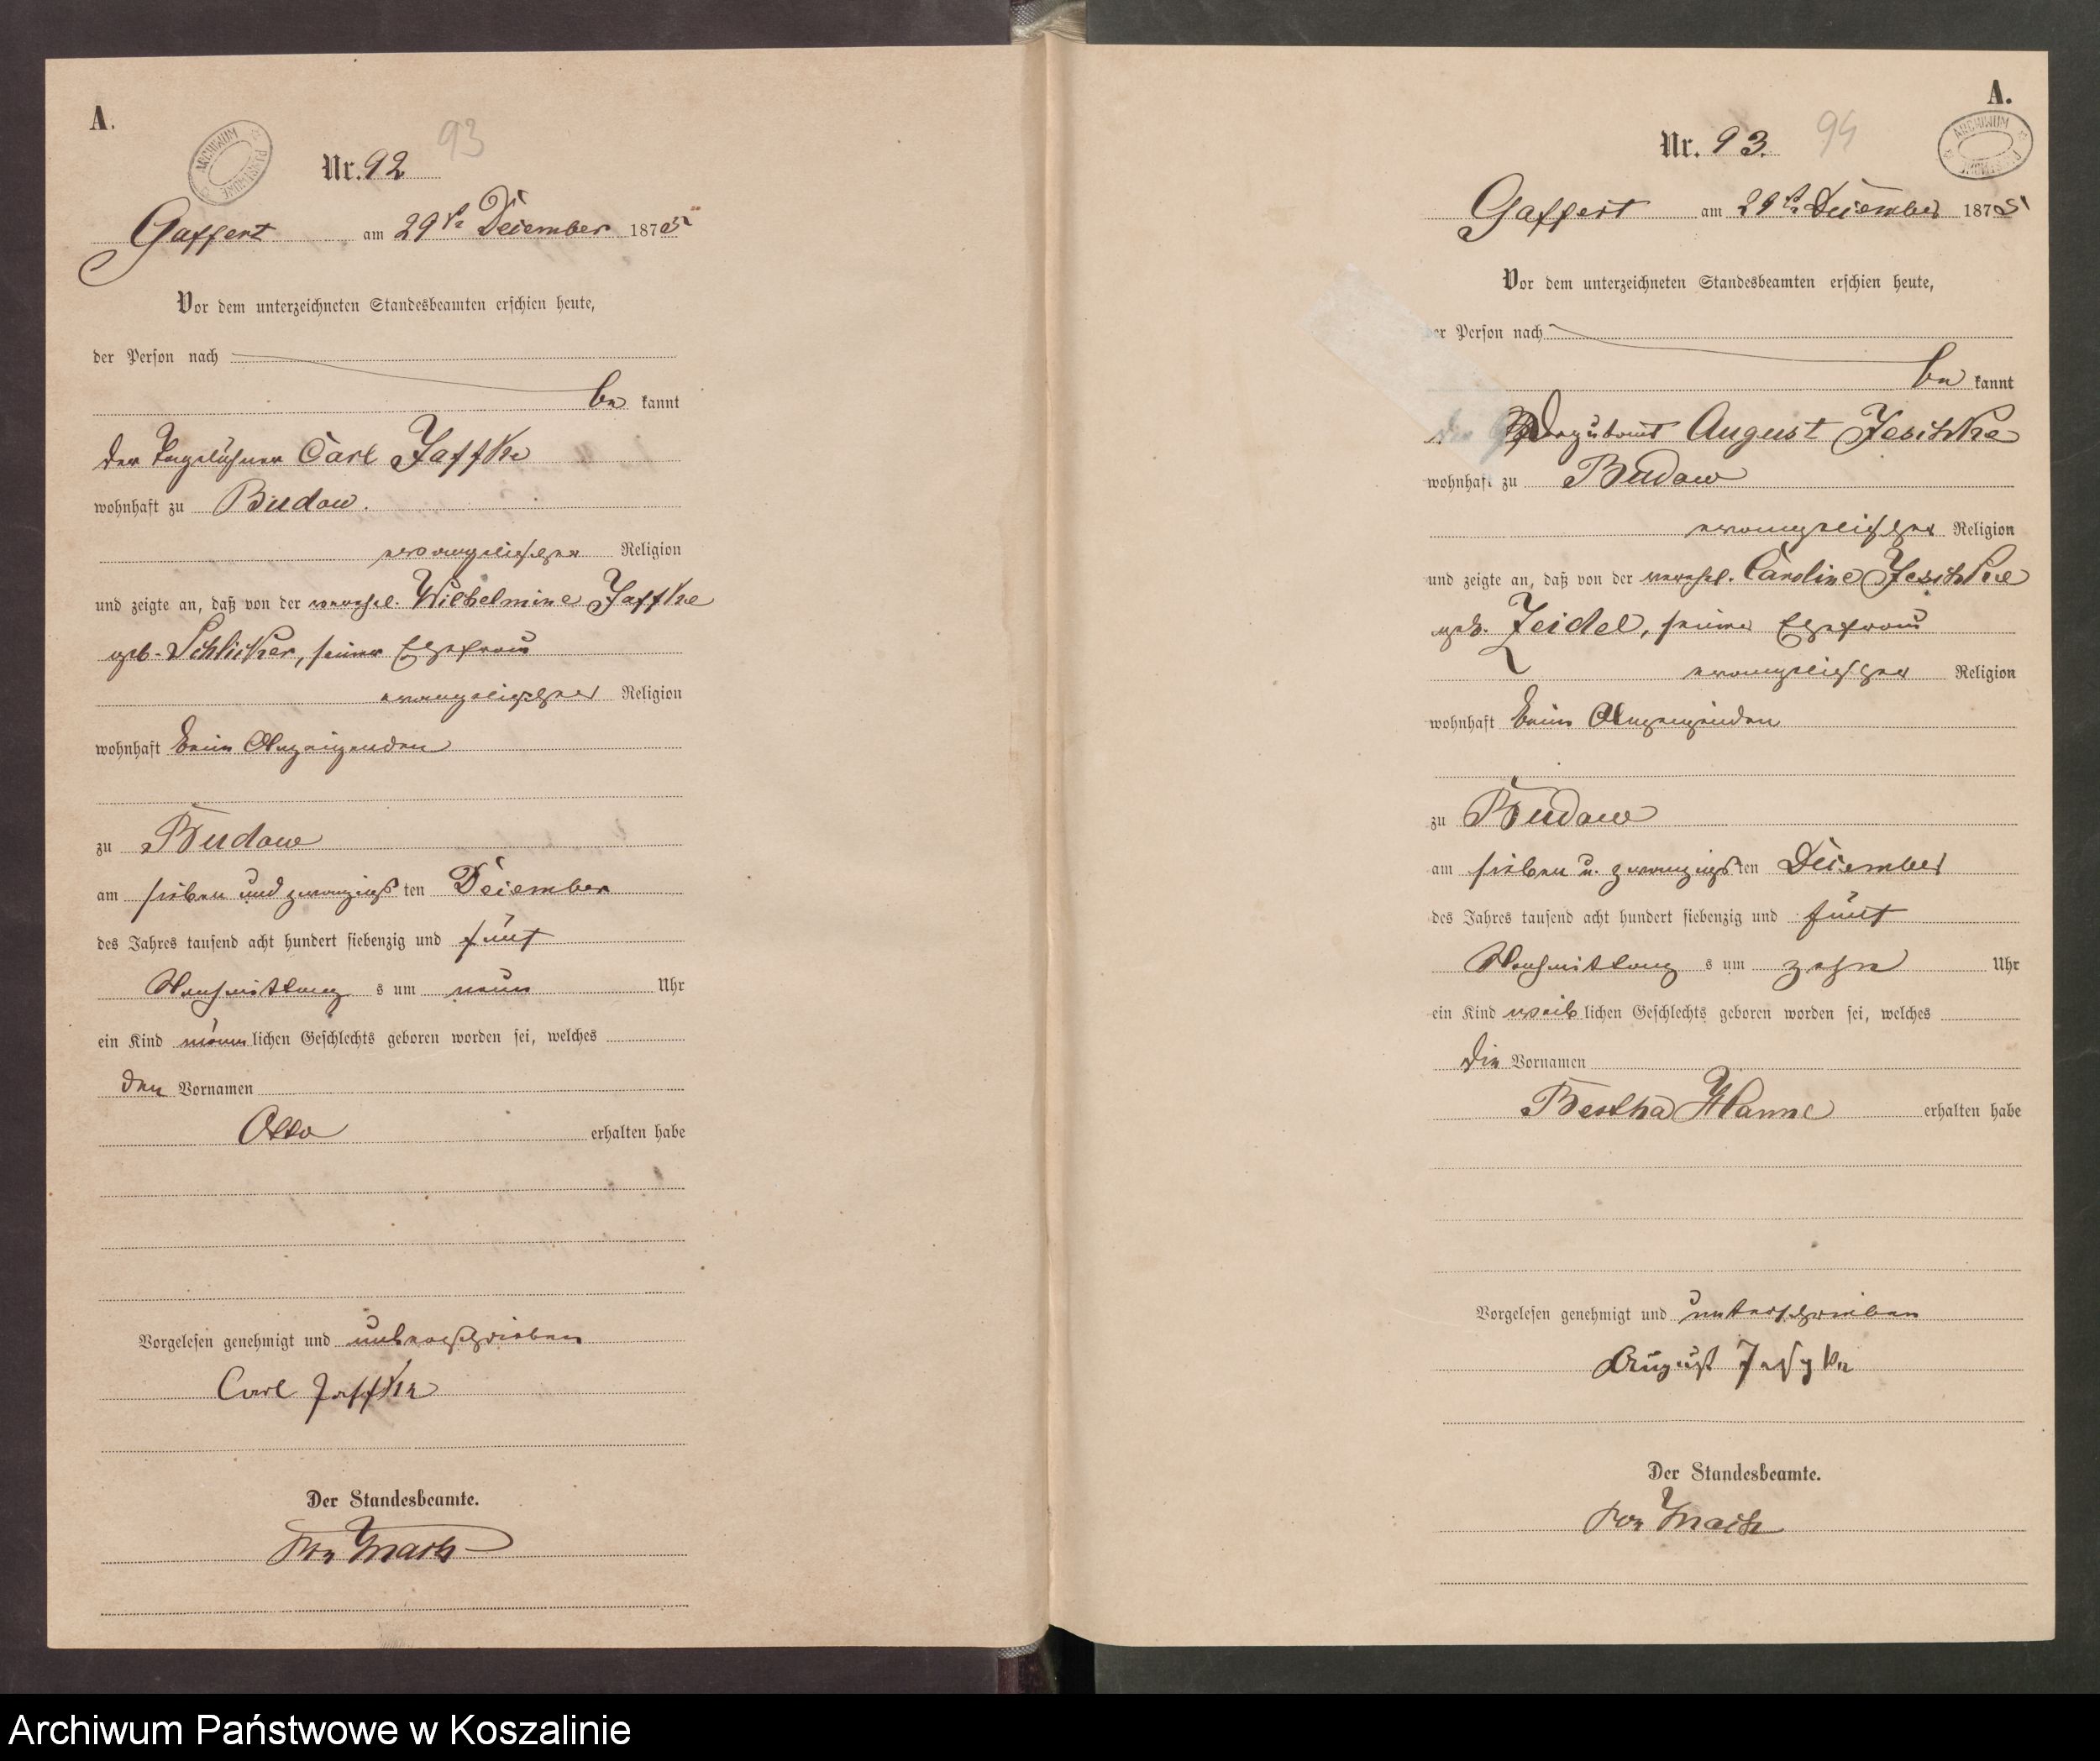 A.
93
Nr. 92
Gaffert am 29te December 1875
Vor dem unterzeichneten Standesbeamten erschien heute,
der Person nach
be kannt
der Tagelöhner Carl Jaffke
wohnhaft zu Budow.
evangelischer Religion
und zeigte an, daß von der verehel. Wilhelmine Jaffke
geb. Schlicker, seiner Ehefrau
evangelischer Religion
wohnhaft beim Anzeigenden
zu Budow
am sieben und zwanzigsten December
des Jahres tausend acht hundert siebenzig und fünf
Nachmittags um neun Uhr
ein Kind männlichen Geschlechts geboren worden sei, welches
den Vornamen
Otto erhalten habe
Vorgelesen genehmigt und unterschrieben
Carl Jaffke
Der Standesbeamte.
von Mach
A.
94
Nr. 93.
Gaffert am 29te December 1875
Vor dem unterzeichneten Standesbeamten erschien heute,
der Person nach
be kannt
der Deputant August Jeschke
wohnhaft zu Budow
evangelischer Religion
und zeigte an, daß von der verehel. Caroline Jeschke
geb. Zeidel, seiner Ehefrau
evangelischer Religion
wohnhaft beim Anzeigenden
zu Budow
am sieben u. zwanzigsten December
des Jahres tausend acht hundert siebenzig und fünf
Nachmittags um zehn Uhr
ein Kind weiblichen Geschlechts geboren worden sei, welches
die Vornamen
Bertha Hanne erhalten habe
Vorgelesen genehmigt und unterschrieben
August Jeschke
Der Standesbeamte.
von Mach
Archiwum Państwowe w Koszalinie